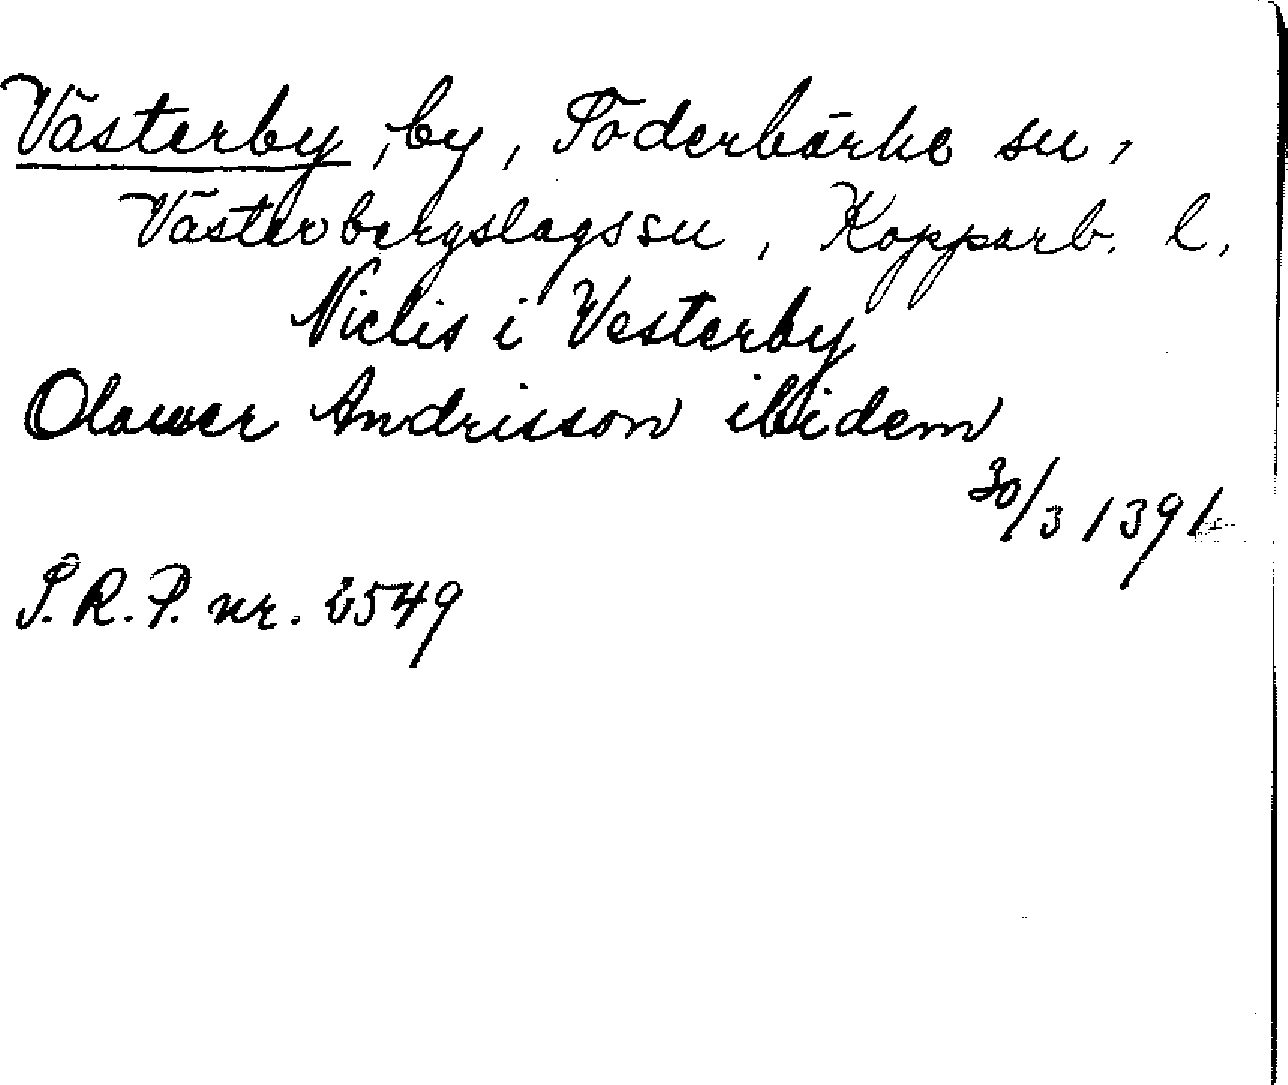 Västerby, by, Söderbärke sn,
Västerbergslagssn, Kopparb. l.
Niclis i Vesterby
Olawer Andrisson ibidem
30/3 1391
S.R.P. nr. 2549